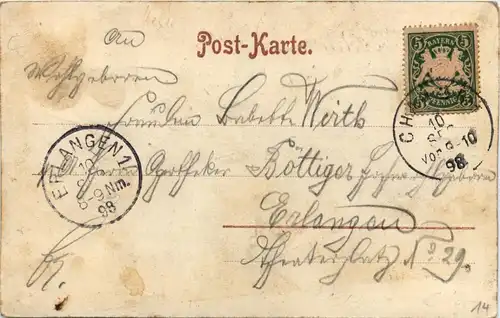 Post-Karte.
An
Wohlgeboren
Fräulein Babette Wirth
Herrn Apotheker Böttiger
Erlangen
Theaterplatz No 29.
BAYERN
5 5
PFENNIG
ERLANGEN 1
10
8-9 Nm.
98
CH
10
SEP
VOR 9-10
98
14